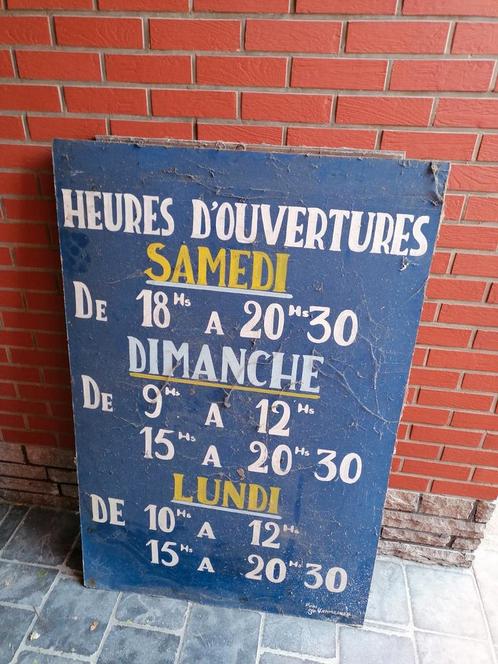 HEURES D'OUVERTURES
SAMEDI
DE 18Hs A 20Hs30
DIMANCHE
DE 9Hs A 12Hs
15Hs A 20Hs30
LUNDI
DE 10Hs A 12Hs
15Hs A 20Hs30